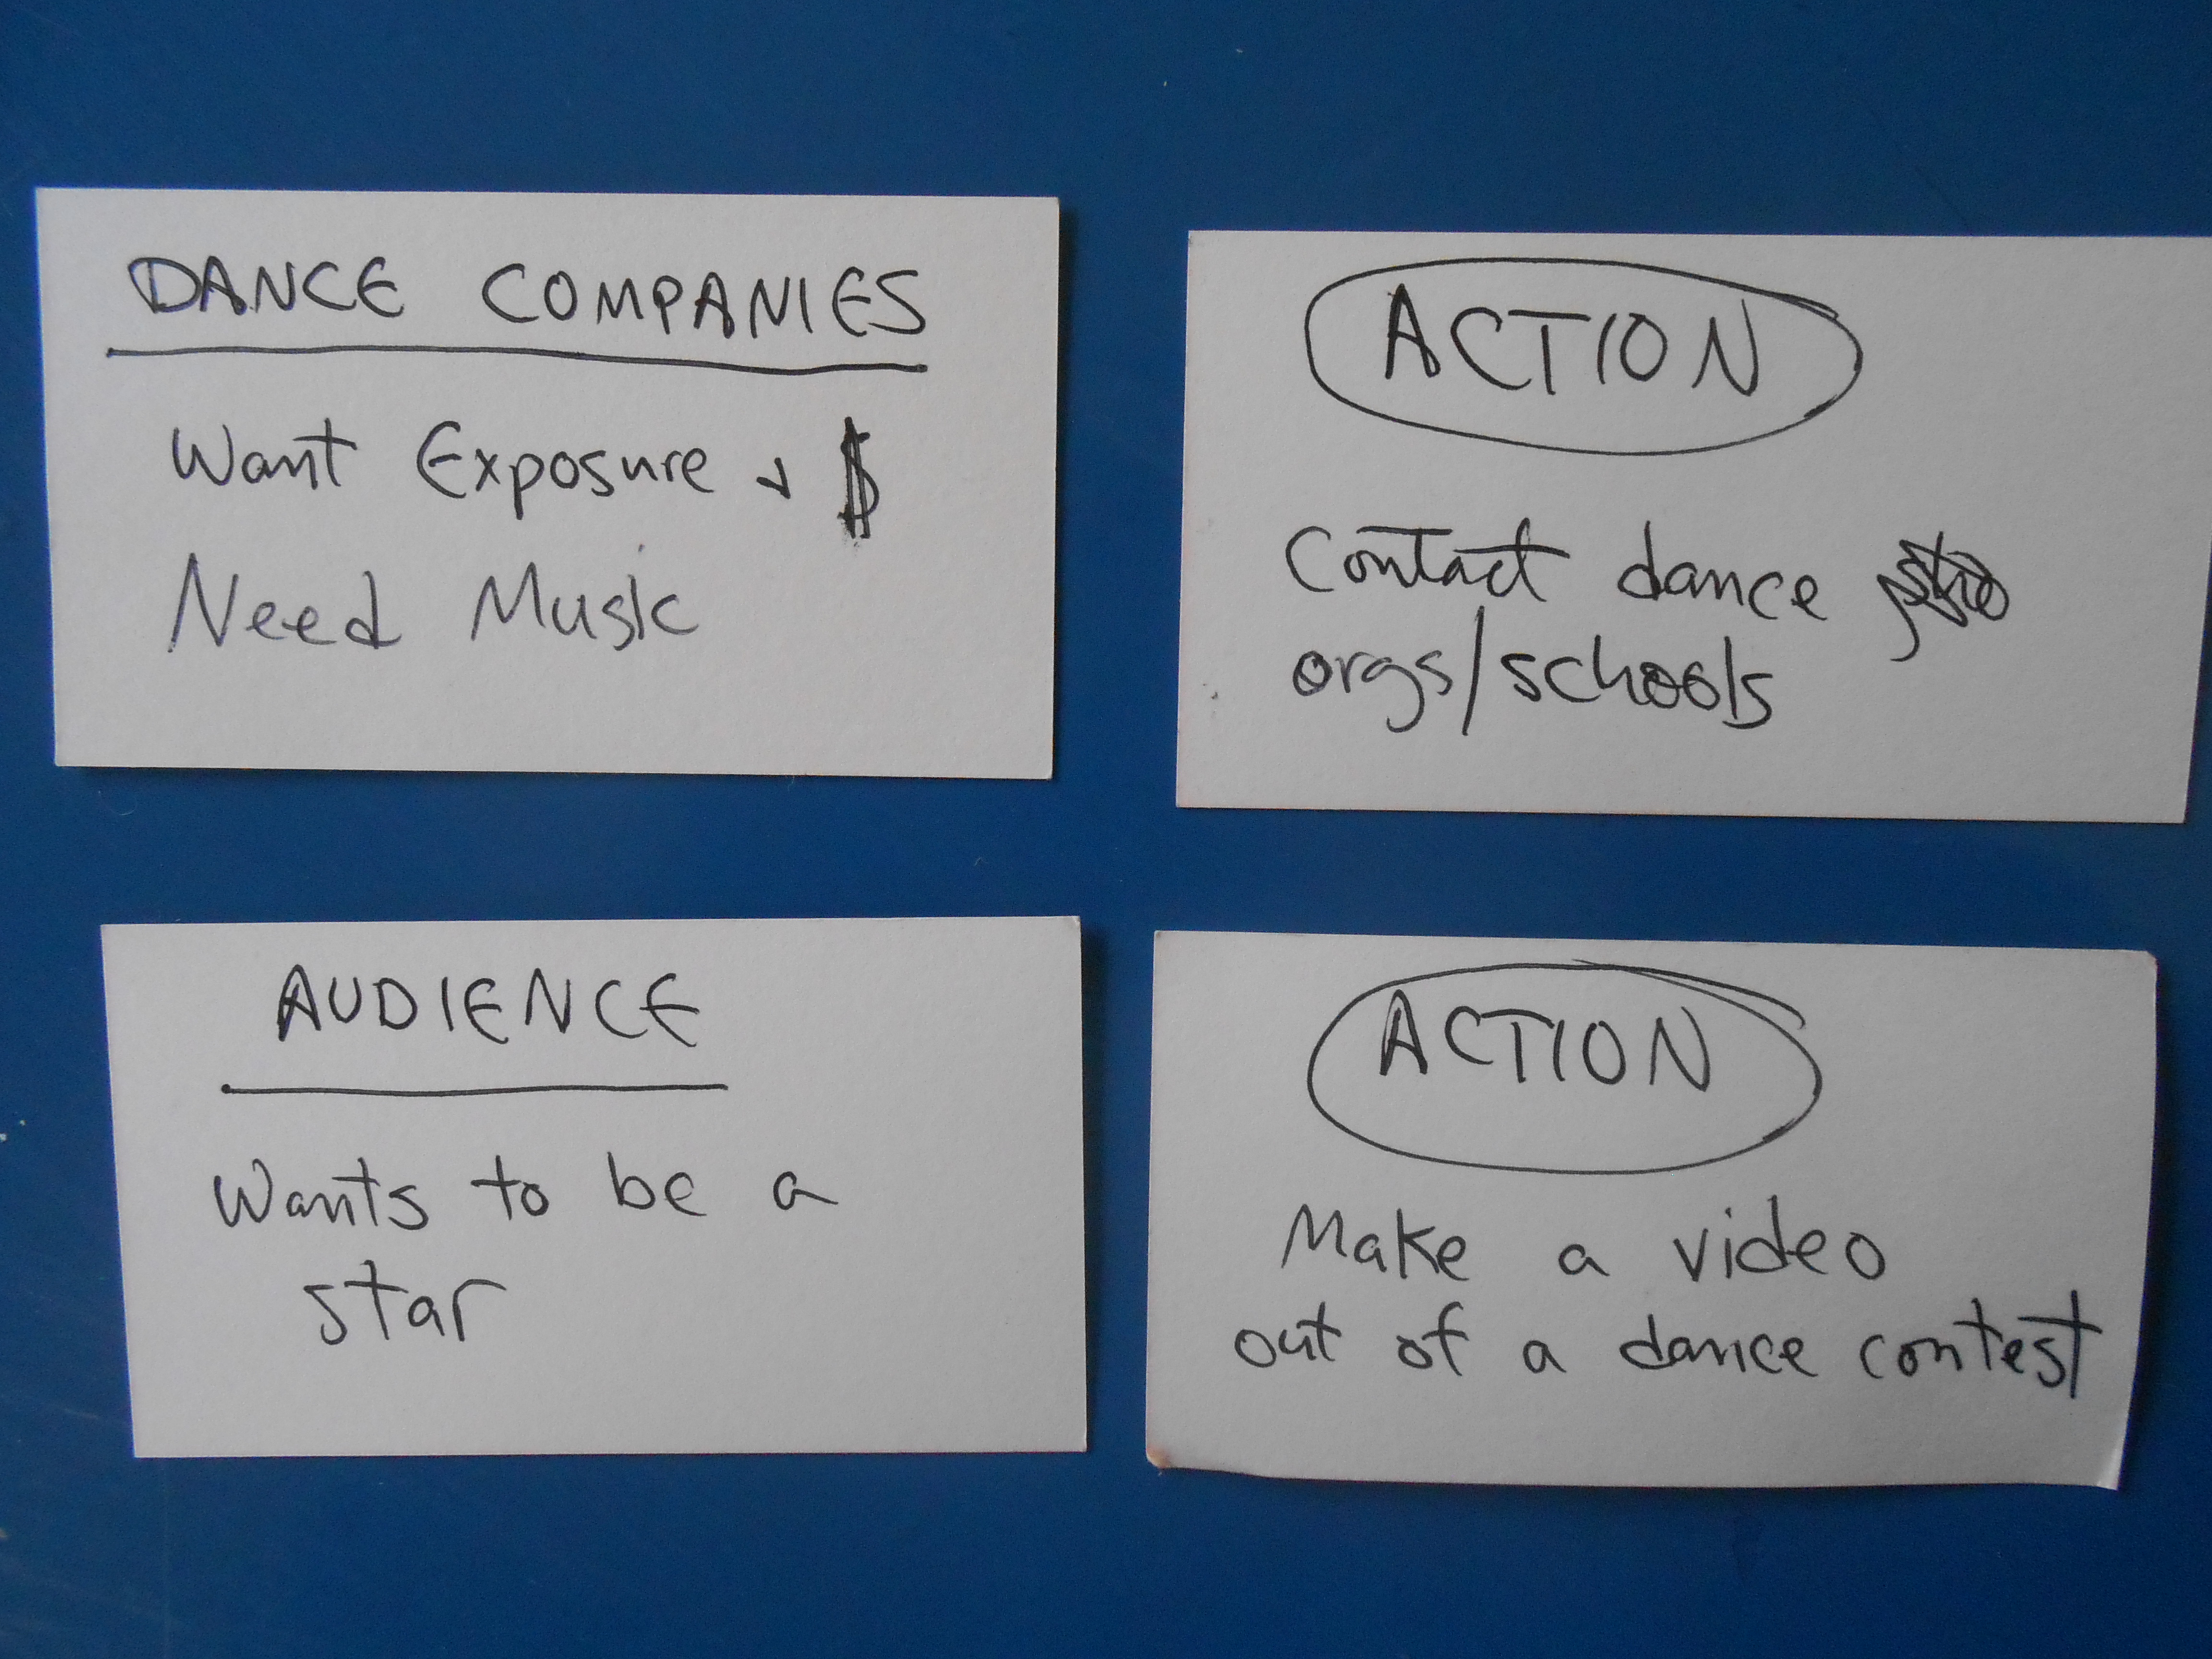 DANCE COMPANIES
Want Exposure + $
Need Music
ACTION
Contact dance
orgs/schools
AUDIENCE
Wants to be a
star
ACTION
Make a video
out of a dance contest